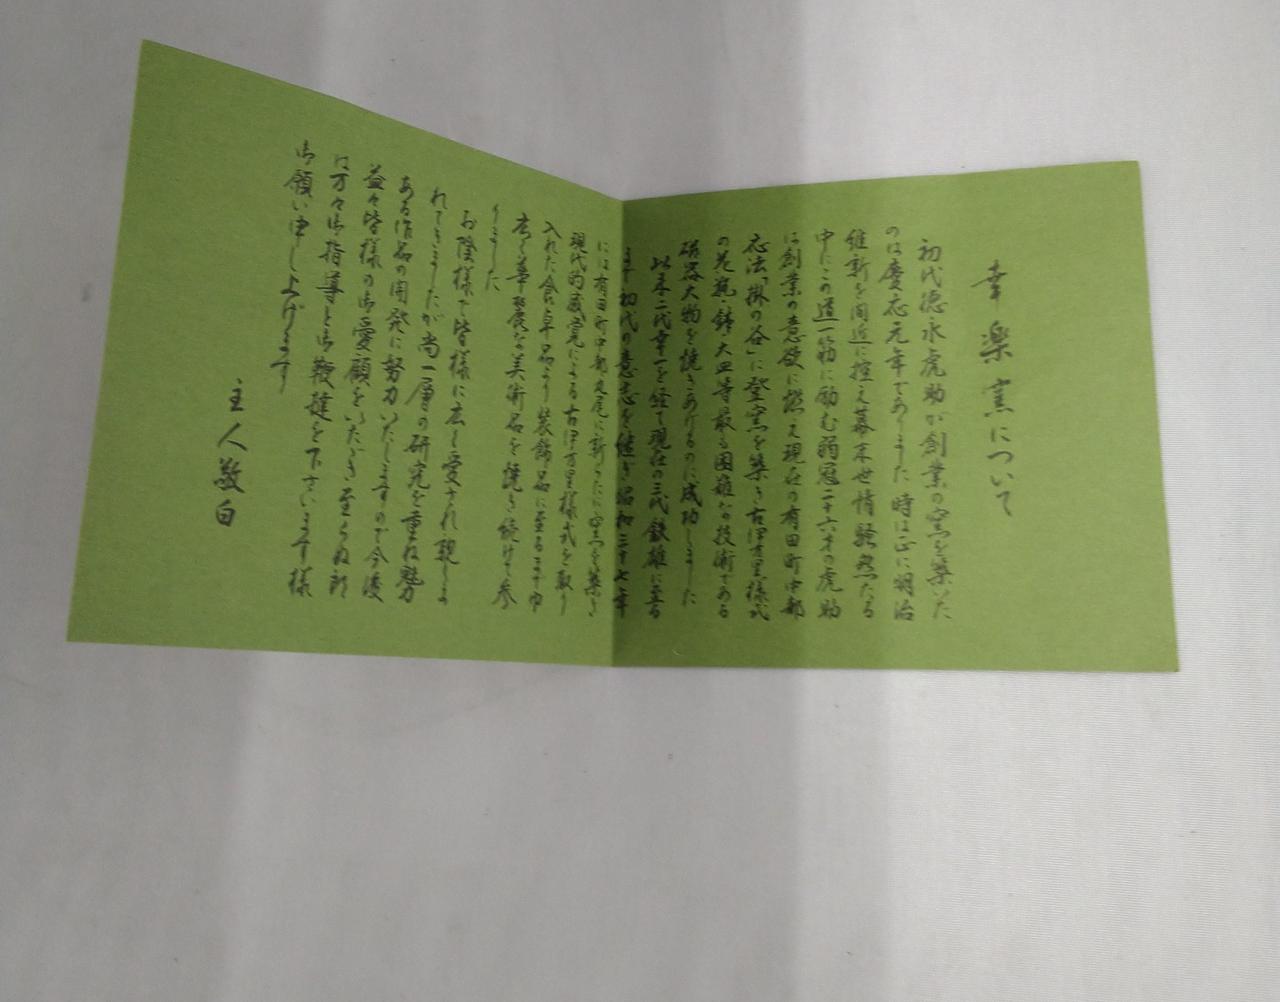 幸楽窯について
初代徳永虎助が創業の窯を築いた
のは慶応元年でありました 時は正に明治
維新を間近に控え幕末世情騒然たる
中にこの道一筋に励む弱冠二十六才の虎助
は創業の意欲に燃え現在の有田町中部
応法「掛の谷」に登窯を築き古伊万里様式
の花瓶・鉢・大皿等最も困難な技術である
磁器大物を焼きあげるのに成功しました
以来二代幸一を経て現在の三代鉄雄に至る
まで初代の意志を継ぎ昭和三十七年
には有田町中部丸尾に新たに窯を築き
現代的感覚による古伊万里様式を取り
入れた食卓品より装飾品に至るまで巾
広く華麗な美術品を焼き続けて参
りました
お陰様で皆様に広く愛され親しま
れてきましたが尚一層の研究を重ね魅力
ある作品の開発に努力いたしますので今後
益々皆様の御愛顧をいただき至らぬ節
は万々御指導と御鞭撻を下さいます様
御願い申し上げます
主人敬白